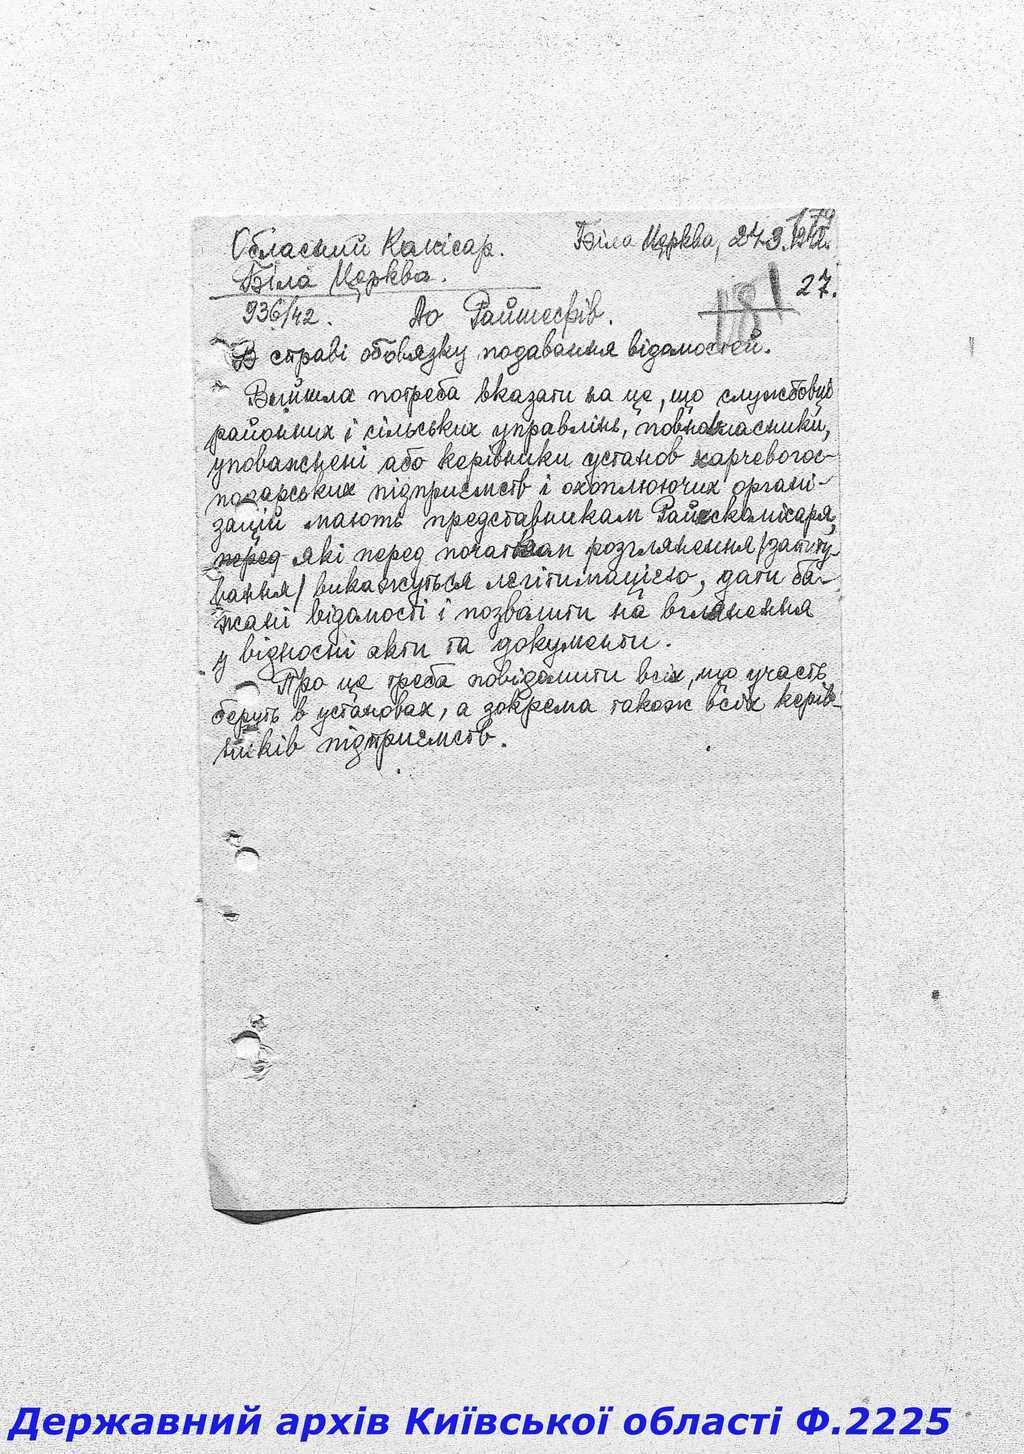 Обласний Комісар.
Біла Церква, 24.9.1942.
179
Біла Церква.
181
27.
936/42.
До Райшефів.
В справі обовязку подавання відомостей.
Вийшла потреба вказати на це, що службовці
районних і сільських управлінь, повновласники,
уповажнені або керівники установ харчевогос-
подарських підприємств і охоплюючих органі-
зацій мають представникам Райхскомісаря,
перед які перед початком розглянення /запиту-
вання/ викажуться легітимацією, дати ба-
жані відомості і позволити на вглянення
у відносні акти та документи.
Про це треба повідомити всіх, що участь
беруть в установах, а зокрема також всіх керів-
ників підприємств.
Державний архів Київської області Ф.2225